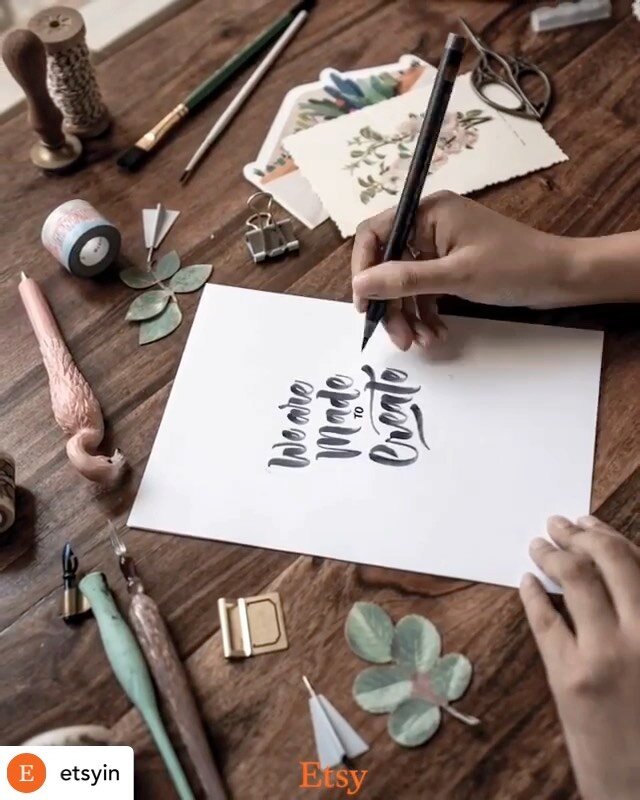 We are
Made
TO
Create
Etsy
E etsyin